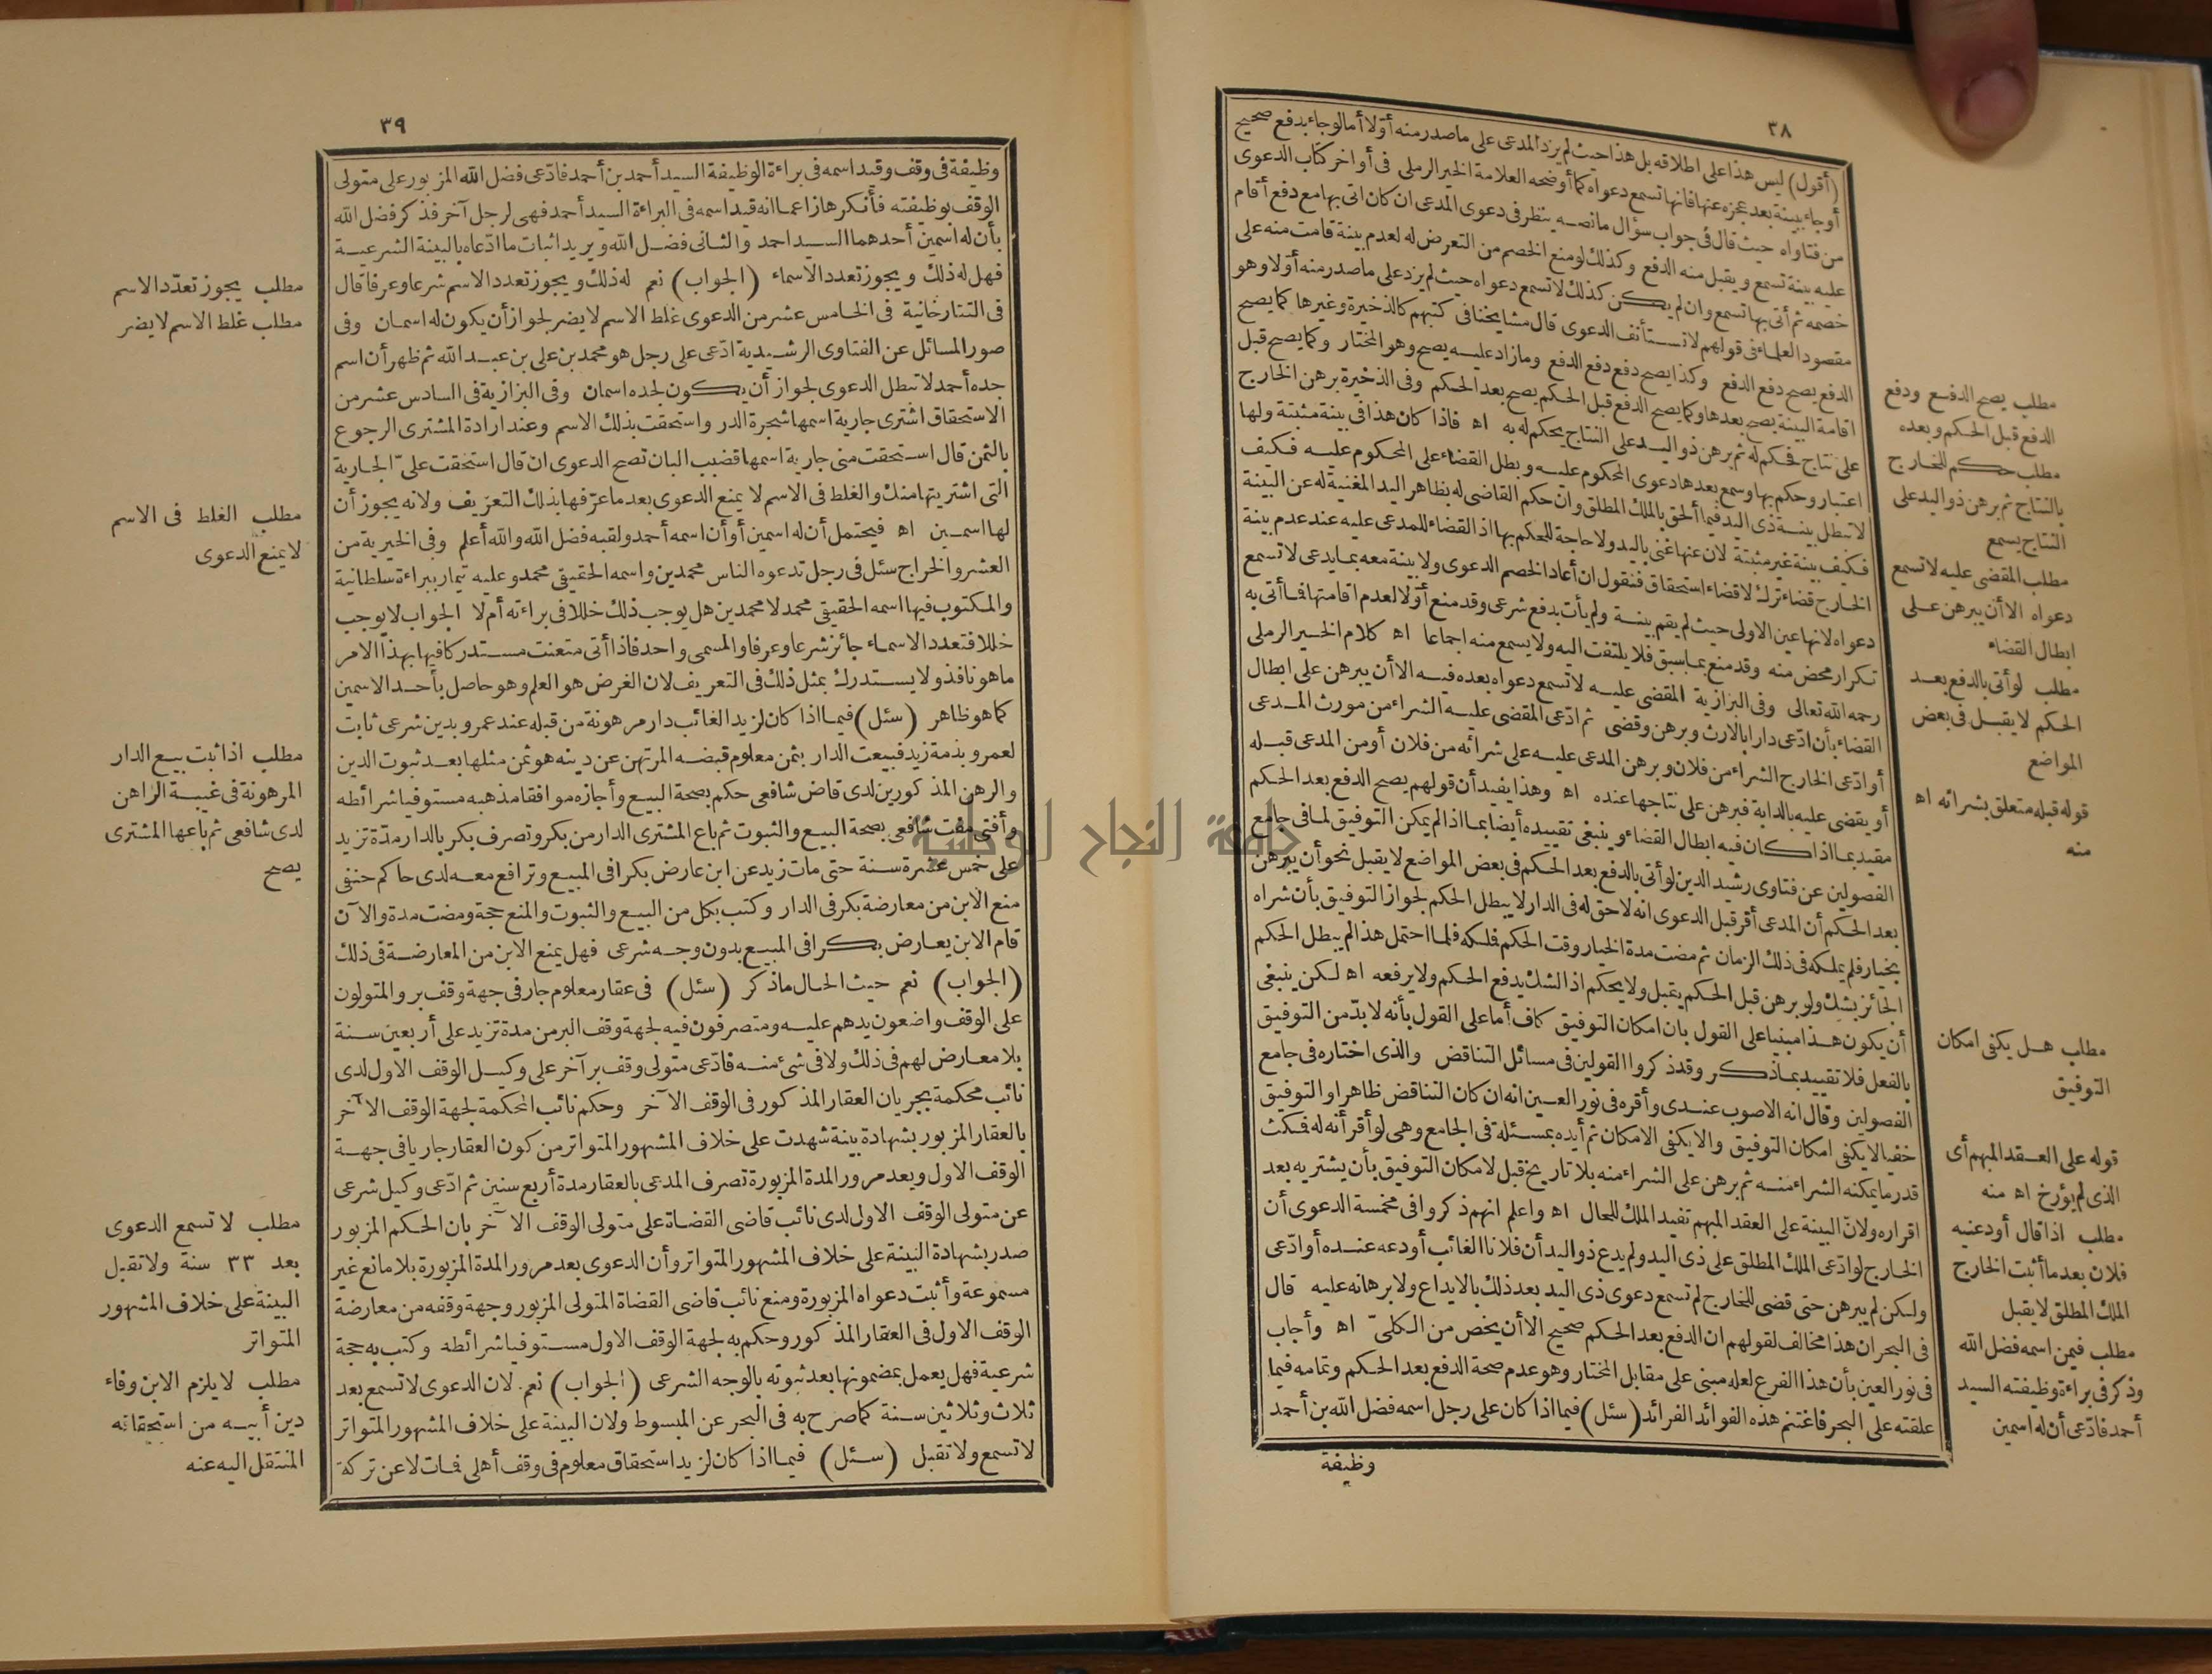 ٣٨
(أقول) ليس هذا على اطلاقه بل هذا حيث لم يزد المدعى على ما صدر منه أولا أما لو جاء بدفع صحيح
أو جاء ببينة بعد عجزه عنها فانها تسمع دعواه كما أوضحه العلامة الخير الرملى فى أواخر كتاب الدعوى
من فتاواه حيث قال فى جواب سؤال ما نصه ينظر فى دعوى المدعى ان كان اتى بها مع دفع أقام
عليه بينة تسمع ويقبل منه الدفع وكذلك لو منع الخصم من التعرض له لعدم بينة قامت منه على
خصمه ثم أتى بها تسمع وان لم يكن كذلك لا تسمع دعواه حيث لم يزد على ما صدر منه أولا وهو
مقصود العلماء فى قولهم لا تستأنف الدعوى قال مشايخنا فى كتبهم كالذخيرة وغيرها كما يصح
الدفع يصح دفع الدفع وكذا يصح دفع دفع الدفع وما زاد عليه يصح وهو المختار وكما يصح قبل
اقامة البينة يصح بعدها وكما يصح الدفع قبل الحكم يصح بعد الحكم وفى الذخيرة برهن الخارج
على نتاج فحكم له ثم برهن ذو اليد على النتاج يحكم له به اه فاذا كان هذا فى بينة مثبتة ولها
اعتبار وحكم بها وسمع بعدها دعوى المحكوم عليه وبطل القضاء على المحكوم عليه فكيف
لا تبطل بينة ذى اليد فيما ألحق بالملك المطلق وان حكم القاضى له بظاهر اليد المغنية له عن البينة
فكيف بينة غير مثبتة لان عنها غنى باليد ولا حاجة للحكم بها اذ القضاء للمدعى عليه عند عدم بينة
الخارج قضاء ترك لا قضاء استحقاق فنقول ان أعاد الخصم الدعوى ولا بينة معه بما يدعى لا تسمع
دعواه لانها عين الاولى حيث لم يقم بينة ولم يأت بدفع شرعى وقد منع أولا لعدم اقامتها فما أتى به
تكرار محض منه وقد منع بما سبق فلا يلتفت اليه ولا يسمع منه اجماعا اه كلام الخير الرملى
رحمه الله تعالى وفى البزازية المقضى عليه لا تسمع دعواه بعده فيه الا أن يبرهن على ابطال
القضاء بأن ادعى دارا بالارث وبرهن وقضى ثم ادعى المقضى عليه الشراء من مورث المدعى
أو ادعى الخارج الشراء من فلان وبرهن المدعى عليه على شرائه من فلان أو من المدعى قبله
أو يقضى عليه بالدابة فبرهن على نتاجها عنده اه وهذا يفيد أن قولهم يصح الدفع بعد الحكم
مقيد بما اذا كان فيه ابطال القضاء وينبغى تقييده أيضا بما اذا لم يمكن التوفيق لما فى جامع
الفصولين عن فتاوى رشيد الدين لو أتى بالدفع بعد الحكم فى بعض المواضع لا يقبل نحو أن يبرهن
بعد الحكم أن المدعى أقر قبل الدعوى انه لا حق له فى الدار لا يبطل الحكم لجواز التوفيق بأن شراه
بخيار فلم يملكه فى ذلك الزمان ثم مضت مدة الخيار وقت الحكم فملكه فلما احتمل هذا لم يبطل الحكم
الجائز بشك ولو برهن قبل الحكم يقبل ولا يحكم اذ الشك يدفع الحكم ولا يرفعه اه لكن ينبغى
أن يكون هذا مبنيا على القول بان امكان التوفيق كاف أما على القول بأنه لا بد من التوفيق
بالفعل فلا تقييد بما ذكر وقد ذكروا القولين فى مسائل التناقض والذى اختاره فى جامع
الفصولين وقال انه الاصوب عندى وأقره فى نور العين انه ان كان التناقض ظاهرا والتوفيق
خفيا لا يكفى امكان التوفيق والا يكفى الامكان ثم أيده بمسئلة فى الجامع وهى لو أقر أنه له فمكث
قدر ما يمكنه الشراء منه ثم برهن على الشراء منه بلا تاريخ قبل لامكان التوفيق بأن يشتريه بعد
اقراره ولان البينة على العقد المبهم تفيد الملك للحال اه واعلم انهم ذكروا فى مخمسة الدعوى أن
الخارج لو ادعى الملك المطلق على ذى اليد ولم يدع ذو اليد أن فلانا الغائب أودعه عنده أو ادعى
ولكن لم يبرهن حتى قضى للخارج لم تسمع دعوى ذى اليد بعد ذلك بالايداع ولا برهانه عليه قال
فى البحر ان هذا مخالف لقولهم ان الدفع بعد الحكم صحيح الا أن يخص من الكلى اه وأجاب
فى نور العين بأن هذا الفرع لعله مبنى على مقابل المختار وهو عدم صحة الدفع بعد الحكم وتمامه فيما
علقته على البحر فاغتنم هذه الفوائد الفرائد (سئل) فيما اذا كان على رجل اسمه فضل الله بن أحمد
وظيفة
مطلب يصح الدفع ودفع
الدفع قبل الحكم وبعده
مطلب حكم للخارج
بالنتاج ثم برهن ذو اليد على
النتاج يسمع
مطلب المقضى عليه لا تسمع
دعواه الا أن يبرهن على
ابطال القضاء
مطلب لو أتى بالدفع بعد
الحكم لا يقبل فى بعض
المواضع
قوله قبله متعلق بشرائه اه
منه
مطلب هل يكفى امكان
التوفيق
قوله على العقد المبهم أى
الذى لم يؤرخ اه منه
مطلب اذا قال أودعنيه
فلان بعد ما أثبت الخارج
الملك المطلق لا يقبل
مطلب فيمن اسمه فضل الله
وذكر فى براءة وظيفته السيد
أحمد فادعى أن له اسمين
٣٩
وظيفة فى وقف وقيد اسمه فى براءة الوظيفة السيد أحمد بن أحمد فادعى فضل الله المزبور على متولى
الوقف بوظيفته فأنكرها زاعما انه قيد اسمه فى البراءة السيد أحمد فهى لرجل آخر فذكر فضل الله
بأن له اسمين أحدهما السيد احمد والثانى فضل الله ويريد اثبات ما ادعاه بالبينة الشرعية
فهل له ذلك ويجوز تعدد الاسماء (الجواب) نعم له ذلك ويجوز تعدد الاسم شرعا وعرفا قال
فى التتارخانية فى الخامس عشر من الدعوى غلط الاسم لا يضر لجواز أن يكون له اسمان وفى
صور المسائل عن الفتاوى الرشيدية ادعى على رجل هو محمد بن على بن عبد الله ثم ظهر أن اسم
جده أحمد لا تبطل الدعوى لجواز أن يكون لجده اسمان وفى البزازية فى السادس عشر من
الاستحقاق اشترى جارية اسمها شجرة الدر واستحقت بذلك الاسم وعند ارادة المشترى الرجوع
بالثمن قال استحقت منى جارية اسمها قضيب البان تصح الدعوى ان قال استحقت على الجارية
التى اشتريتها منك والغلط فى الاسم لا يمنع الدعوى بعد ما عرفها بذلك التعريف ولانه يجوز أن
لها اسمين اه فيحتمل أن له اسمين أو أن اسمه أحمد ولقبه فضل الله والله أعلم وفى الخيرية من
العشر والخراج سئل فى رجل تدعوه الناس محمدين واسمه الحقيقى محمد وعليه تيمار ببراءة سلطانية
والمكتوب فيها اسمه الحقيقى محمد لا محمدين هل يوجب ذلك خللا فى براءته أم لا الجواب لا يوجب
خللا فتعدد الاسماء جائز شرعا وعرفا والمسمى واحد فاذا أتى متعنت مستدركا فيها بهذا الامر
ما هو نافذ ولا يستدرك بمثل ذلك فى التعريف لان الغرض هو العلم وهو حاصل بأحد الاسمين
كما هو ظاهر (سئل) فيما اذا كان لزيد الغائب دار مرهونة من قبله عند عمرو بدين شرعى ثابت
لعمرو بذمة زيد فبيعت الدار بثمن معلوم قبضه المرتهن عن دينه هو ثمن مثلها بعد ثبوت الدين
والرهن المذكورين لدى قاض شافعى حكم بصحة البيع وأجازه موافقا مذهبه مستوفيا شرائطه
وأفتى مفت شافعى بصحة البيع والثبوت ثم باع المشترى الدار من بكر وتصرف بكر بالدار مدة تزيد
على خمس عشرة سنة حتى مات زيد عن ابن عارض بكرا فى المبيع وترافع معه لدى حاكم حنفى
منع الابن من معارضة بكر فى الدار وكتب بكل من البيع والثبوت والمنع حجة ومضت مدة والآن
قام الابن يعارض بكرا فى المبيع بدون وجه شرعى فهل يمنع الابن من المعارضة فى ذلك
(الجواب) نعم حيث الحال ما ذكر (سئل) فى عقار معلوم جار فى جهة وقف بر والمتولون
على الوقف واضعون يدهم عليه ومتصرفون فيه لجهة وقف البر من مدة تزيد على أربعين سنة
بلا معارض لهم فى ذلك ولا فى شئ منه فادعى متولى وقف بر آخر على وكيل الوقف الاول لدى
نائب محكمة بجريان العقار المذكور فى الوقف الآخر وحكم نائب المحكمة لجهة الوقف الآخر
بالعقار المزبور بشهادة بينة شهدت على خلاف المشهور المتواتر من كون العقار جاريا فى جهة
الوقف الاول وبعد مرور المدة المزبورة تصرف المدعى بالعقار مدة أربع سنين ثم ادعى وكيل شرعى
عن متولى الوقف الاول لدى نائب قاضى القضاة على متولى الوقف الآخر بان الحكم المزبور
صدر بشهادة البينة على خلاف المشهور المتواتر وأن الدعوى بعد مرور المدة المزبورة بلا مانع غير
مسموعة وأثبت دعواه المزبورة ومنع نائب قاضى القضاة المتولى المزبور وجهة وقفه من معارضة
الوقف الاول فى العقار المذكور وحكم به لجهة الوقف الاول مستوفيا شرائطه وكتب به حجة
شرعية فهل يعمل بمضمونها بعد ثبوته بالوجه الشرعى (الجواب) نعم لان الدعوى لا تسمع بعد
ثلاث وثلاثين سنة كما صرح به فى البحر عن المبسوط ولان البينة على خلاف المشهور المتواتر
لا تسمع ولا تقبل (سئل) فيما اذا كان لزيد استحقاق معلوم فى وقف أهلى فمات لا عن تركة
مطلب يجوز تعدد الاسم
مطلب غلط الاسم لا يضر
مطلب الغلط فى الاسم
لا يمنع الدعوى
مطلب اذا ثبت بيع الدار
المرهونة فى غيبة الراهن
لدى شافعى ثم باعها المشترى
يصح
مطلب لا تسمع الدعوى
بعد ٣٣ سنة ولا تقبل
البينة على خلاف المشهور
المتواتر
مطلب لا يلزم الابن وفاء
دين أبيه من استحقاقه
المنتقل اليه عنه
جامعة النجاح الوطنية